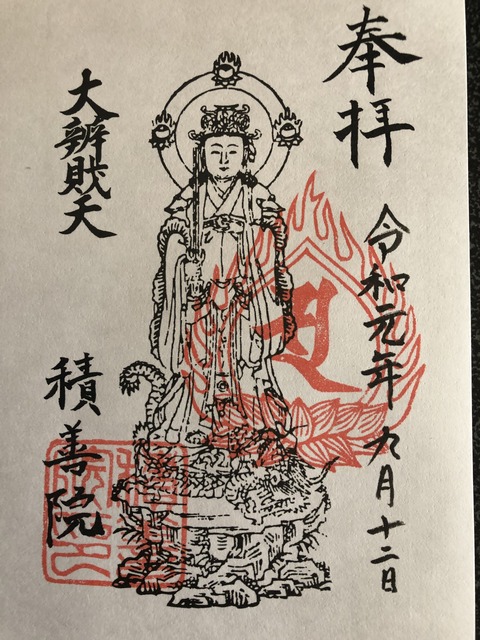 奉拝
令和元年九月十二日
大辨財天
積善院